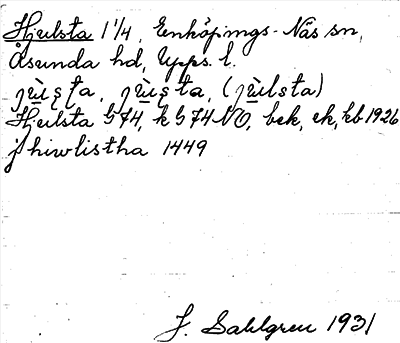 Hjulsta 1 1/4, Enköpings-Näs sn,
Åsunda hd, Upps. l.
Hjulsta G 74, k G 74 NO, bek, ek, kb 1926
j hiwlistha 1449
J. Sahlgren 1931